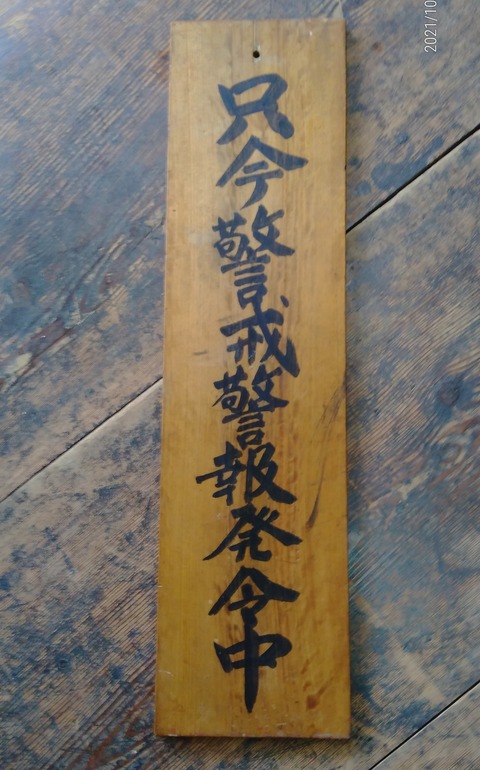 只今警戒警報発令中
2021/10